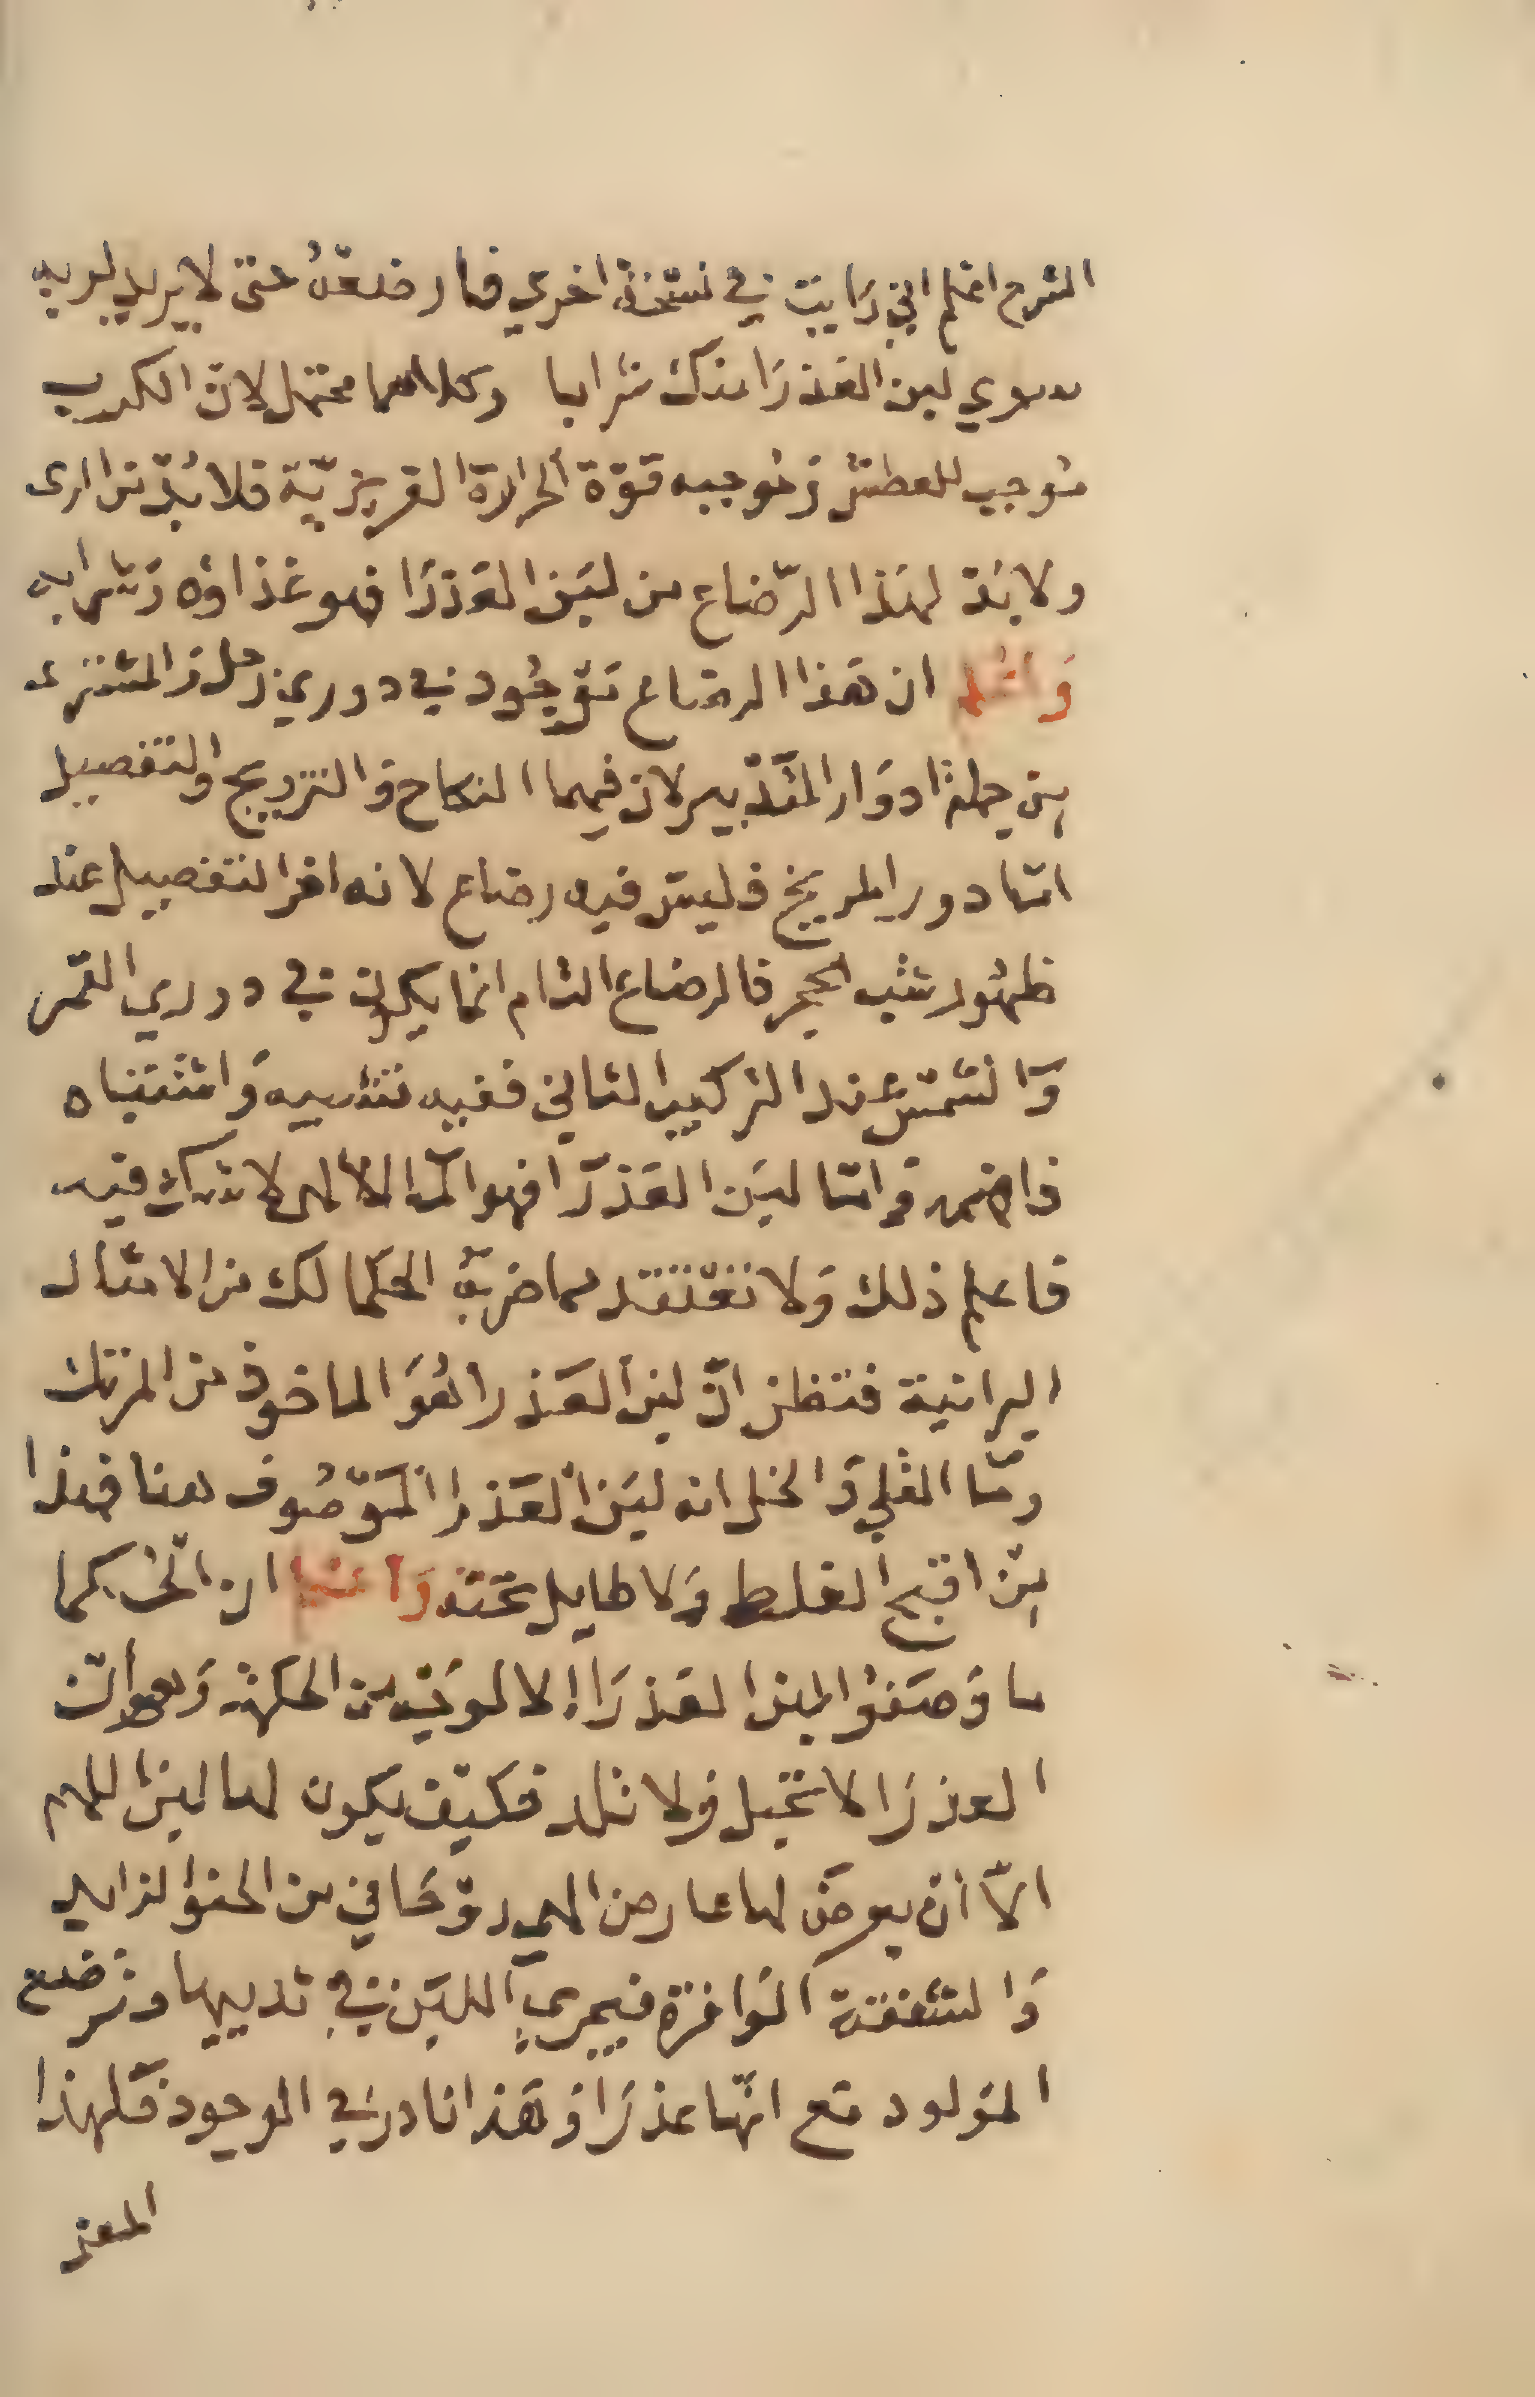 الشرح اعلم اني رايت في نسخة اخري فارضعته حتى لا يريد لديه
سوي لبن العذرا منك شرابا وكلاهما محتمل لان الكرب
موجب للعطش وموجبه قوة الحرارة الغريزية فلا بد من
ولا بد لهذا الرضاع من لبن العذرا فهو غذاؤه وشرابه
واعلم ان هذا الرضاع موجود في دوري زحل والمشتري
من جملة ادوار التدبير لان فيهما النكاح والتزويج والتفصيل
اما دور المريخ فليس فيه رضاع لانه اخر التفصيل عند
ظهور شب الحجر فالرضاع التام انما يكون في دوري القمر
والشمس عند التركيب الثاني ففيه تشبيه واشتباه
فافهمه واما لبن العذرا فهو الما الالهي لا شك فيه
فاعلم ذلك ولا تعتقد مما ضربه الحكما لك من الامثال
البرانية فتظن ان لبن العذرا هو الماخوذ من المرتك
وما القلي والخل انه لبن العذرا الموصوف هنا فهذا
من اقبح الغلط ولا طايل تحته واعلم ان الحكما
ما وصفوا لبن العذرا الا لمويه من الحكمة وهو ان
العذرا لا تحبل ولا تلد فكيف يكون لها لبن اللهم
الا ان يعرض لها عارض الهي روحاني من الحنو الزايد
والشفقة الوافرة فيجري اللبن في ثدييها وترضع
المولود مع انها عذرا وهذا نادر في الوجود فلهذا